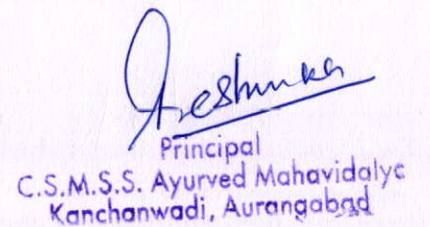 Principal
C.S.M.S.S. Ayurved Mahavidalyc
Kanchanwadi, Aurangabad